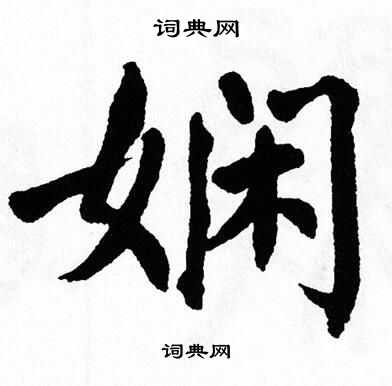 词典网
娴
词典网